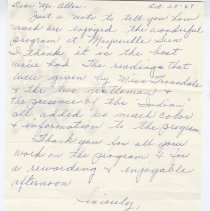 Dear Mr. Allen Oct 28-69
Just a note to tell you how
much we enjoyed the wonderful
program at Meyersville Sunday
I think it is the best
we've had. The readings that
were given by Miss Trousdale
& the two gentlemen &
the presence of the "Indian"
all, added so much color
& information to the program.
Thank you for all your
work on the program & for
a rewarding & enjoyable
afternoon
Sincerely,